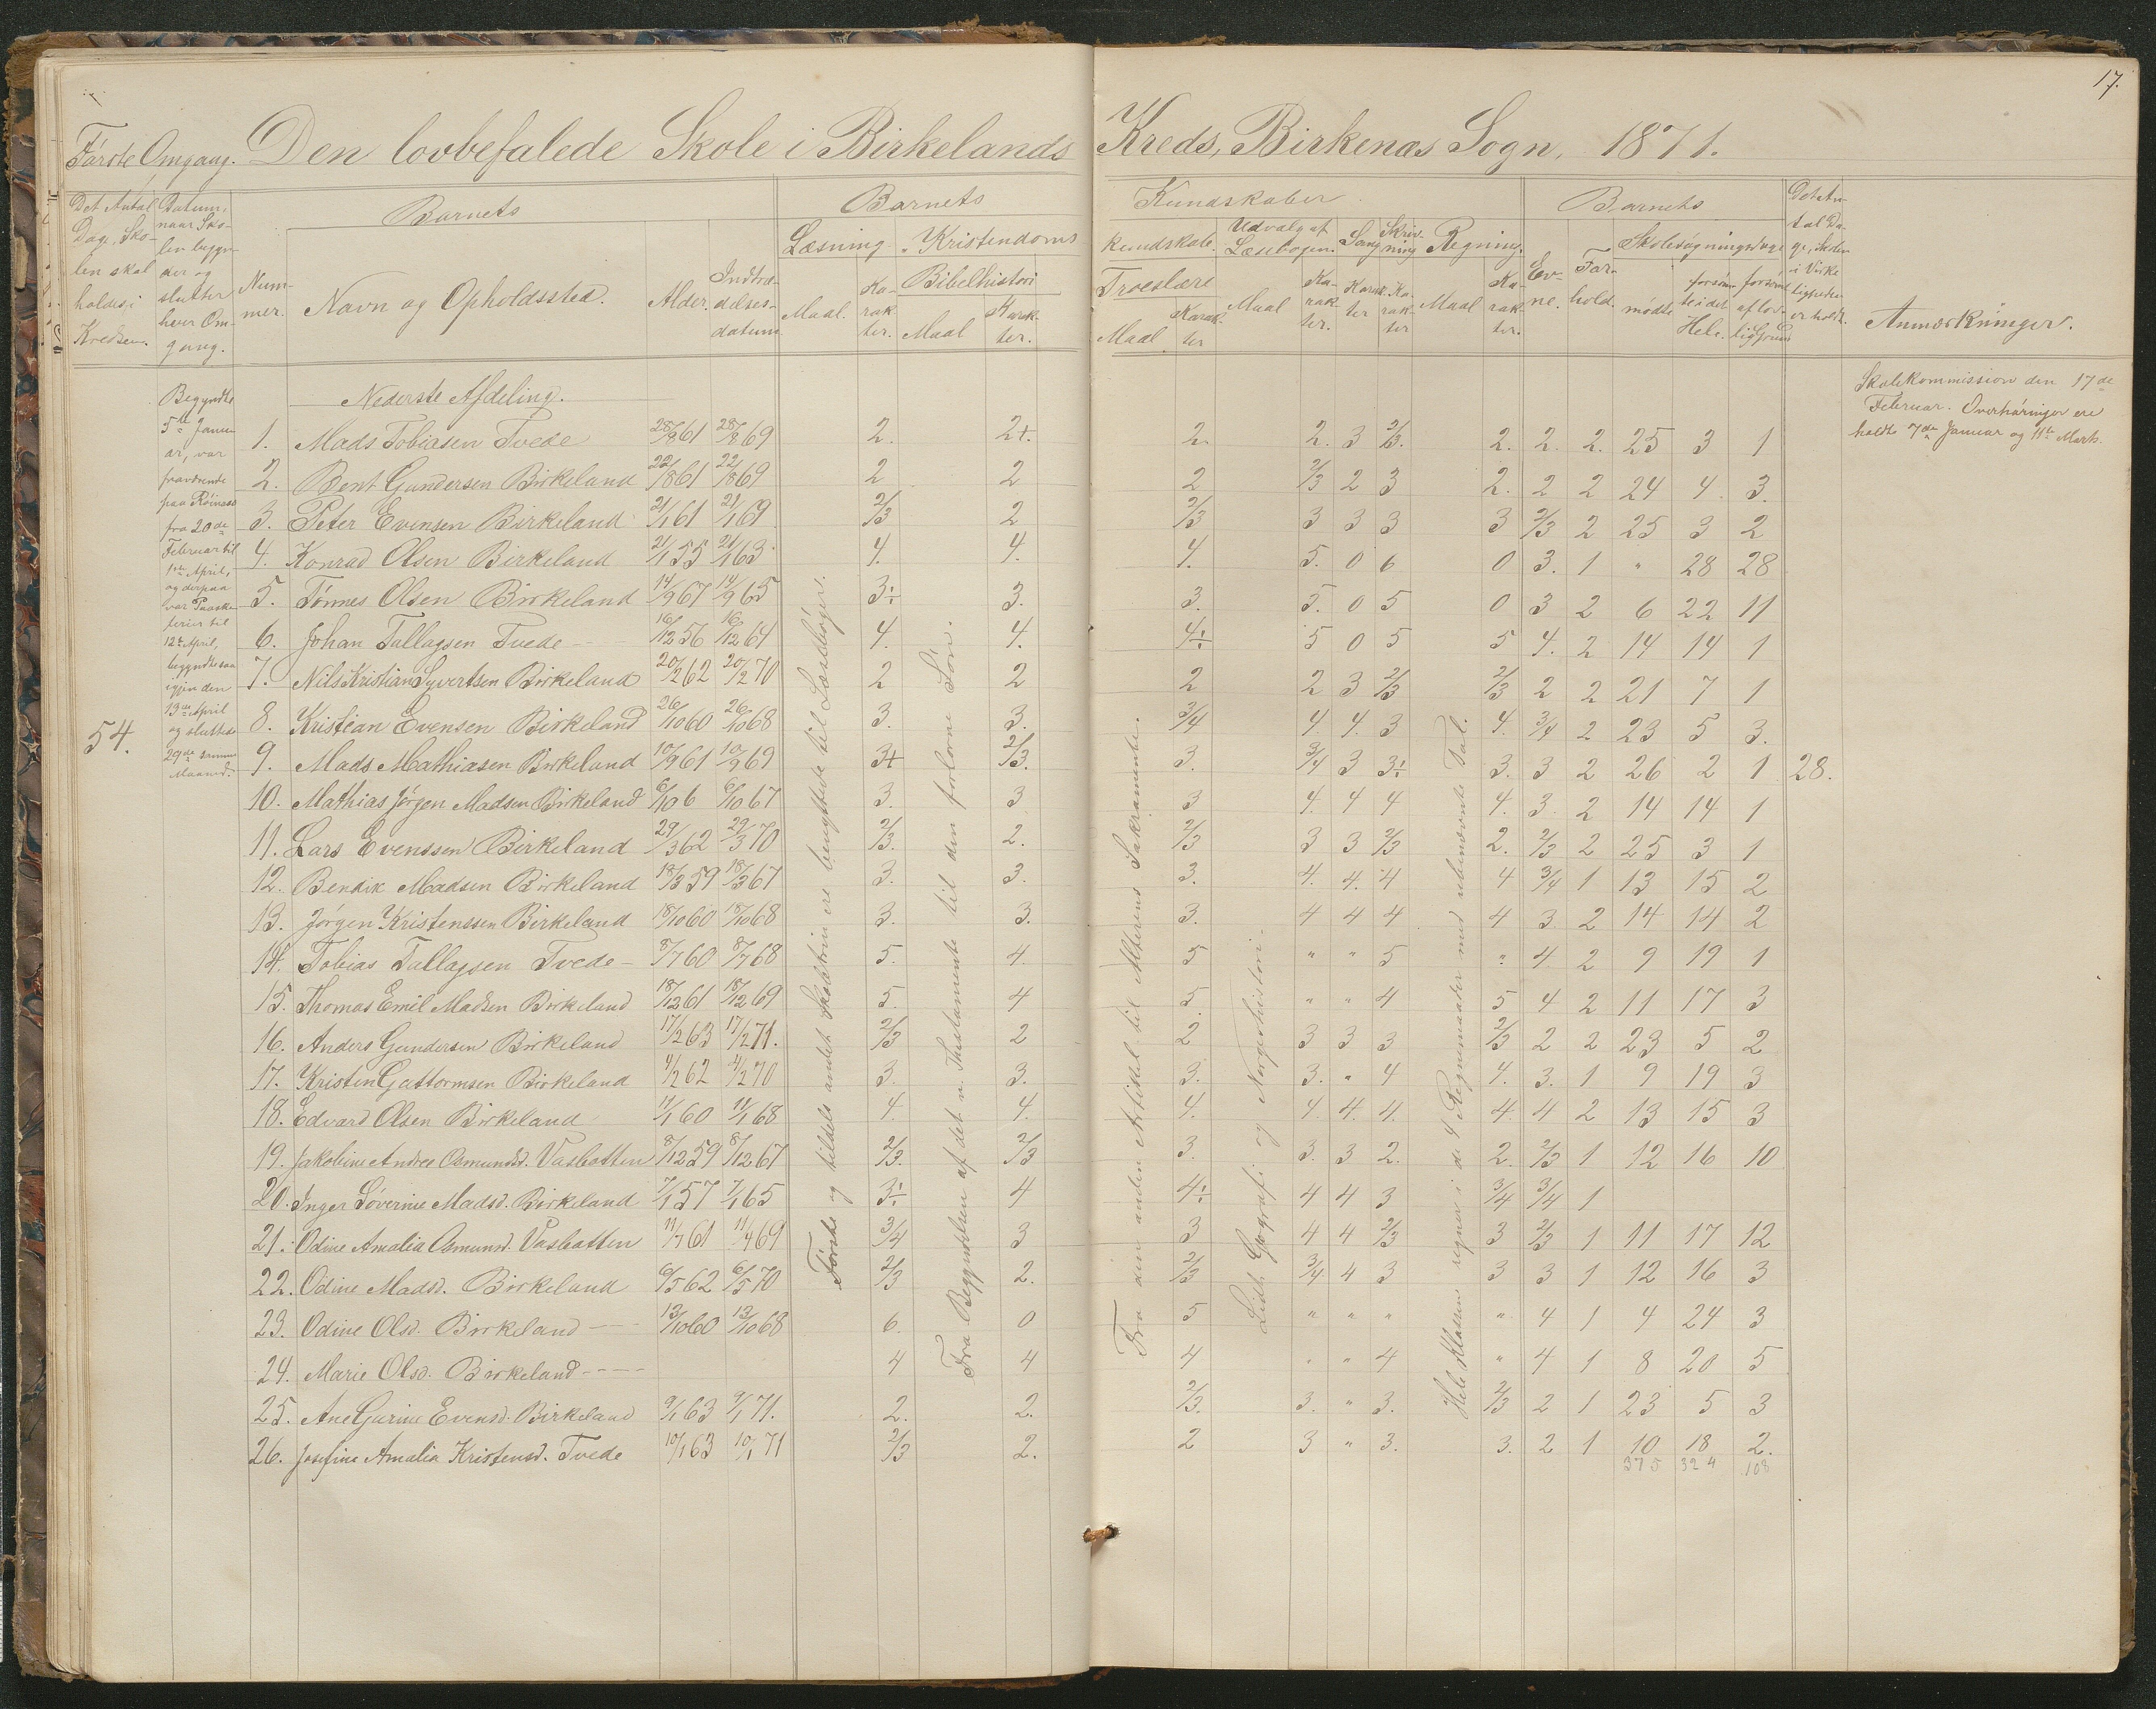 17.
Første Omgang. Den lovbefalede Skole i Birkelands Kreds, Birkenæs Sogn, 1871.
Det Antal Dage, Skolen skal holdes i Kredsen.
Datum, naar Skolen begynder og slutter hver Omgang.
Barnets
Nummer.
Navn og Opholdssted.
Alder.
Indtrædelsesdatum
Barnets Kundskaber
Læsning
Maal.
Karakter.
Kristendomskundskab.
Bibelhistori
Maal
Karakter.
Troeslære
Maal
Karakter
Udvalg af Læsebogen.
Maal
Karakter.
Sang
Karakter
Skrivning
Karakter
Regning.
Maal
Karakter.
Barnets
Evne.
Forhold.
Skolesøgningsdage
mødte
forsømte i det Hele.
forsømte af lovlig Grund
Det Antal Dage, Skolen i Virkeligheden er holdt.
Anmærkninger.
54.
Begyndte
5te Januar,
var
fraværende
paa Røinæs
fra 20de
Februar til
1ste April,
og derpaa
var Paaske
ferier til
12te April,
begyndte saa
igjen den
13de April
og sluttede
29de samme
Maaned.
Nederste Afdeling.
1. Mads Tobiasen Tvede 28/8 61 28/8 69 2. 2+. 2. 2. 3 2/3. 2. 2. 2. 25 3 1
2. Bent Gundersen Birkeland 22/1 861 22/1 869 2 2 2 2/3 2 3 2. 2 2 24 4. 3.
3. Peter Evensen Birkeland 21/1 61 21/1 69 2/3 2 2/3 3 3 3 3 2/3 2 25 3 2
4. Konrad Olsen Birkeland 21/1 55 21/1 63 4. 4. 4. 5. 0 6 0 3. 1 " 28 28
5. Tønnes Olsen Birkeland 14/9 67 14/9 65 3÷ 3. 3. 5. 0 5 0 3 2 6 22 11
6. Johan Tallagsen Tvede 16/12 56 16/12 64 4. 4. 4÷ 5 0 5 5 4. 2 14 14 1
7. Nils Kristian Syvertsen Birkeland 20/2 62 20/2 70 2 2 2 2 3 2/3 2/3 2 2 21 7 1
8. Kristian Evensen Birkeland 26/10 60 26/10 68 3. 3. 3/4 4. 4. 3 4. 3/4 2 23 5 3.
9. Mads Mathiasen Birkeland 10/9 61 10/9 69 3+ 2/3. 3. 3/4 3 3÷ 3. 3 2 26 2 1 28.
10. Mathias Jørgen Madsen Birkeland 6/10 6 6/10 67 3. 3 3 4. 4 4 4. 3. 2 14 14 1
11. Lars Evenssen Birkeland 29/3 62 29/3 70 2/3. 2. 2/3 3 3 2/3 2. 2/3 2 25 3 1
12. Bendik Madsen Birkeland 18/3 59 18/3 67 3. 3. 3. 4. 4. 4 4 3/4 1 13 15 2
13. Jørgen Kristenssen Birkeland 18/10 60 18/10 68 3. 3. 3. 4 4 4 4 3 2 14 14 2
14. Tobias Tallagsen Tvede 8/7 60 8/7 68 5. 4. 5 " " 5 " 4 2 9 19 1
15. Thomas Emil Madsen Birkeland 18/12 61 18/12 69 5. 4 5. " " 4 5 4 2 11 17 3
16. Anders Gundersen Birkeland 17/2 63 17/2 71. 2/3 2 2 3 3 3 2/3 2 2 23 5 2
17. Kristen Gattormsen Birkeland 4/2 62 4/2 70 3. 3. 3. 3. " 4 4. 3. 1 9 19 3
18. Edvard Olsen Birkeland 11/1 60 11/1 68 4. 4. 4. 4. 4. 4. 4. 4 2 13 15 3
19. Jakobine Andree Osmundsd. Vasbotten 8/12 59 8/12 67 2/3. 2/3 3. 3. 3 2. 2. 2/3 1 12 16 10
20. Inger Søverine Madsd. Birkeland 7/1 57 7/1 65 3÷ 4 4÷ 4 4 3 3/4 3/4 1
21. Odine Amalia Osmund. Vasbotten 11/4 61 11/4 69 3/4 3 3 4 4 2/3 3 2/3 1 11 17 12
22. Odine Madsd. Birkeland 6/5 62 6/5 70 2/3 2. 2/3 3/4 4 3 3 3 1 12 16 3
23. Odine Olsd. Birkeland 13/10 60 13/10 68 6. 0 5 " " " " 4 1 4 24 3
24. Marie Olsd. Birkeland 4 4 4 " " 4 " 4 1 8 20 5
25. Ane Gurine Evensd. Birkeland 9/1 63 9/1 71. 2. 2. 2/3. 3. " 3. 2/3 2 1 23 5 3
26. Josefine Amalia Kristensd. Tvede 10/1 63 10/1 71 2/3 2. 2 3 " 3. 3. 2 1 10 18 2.
375 324 108
Første og tildels andet Skoletrin ere benyttede til Læsebøger.
Fra Begyndelsen af det n. Thestamente til den forlorne Søn.
Fra den anden Artikel til Alterens Sakramente.
Lidt Geografi og Norgeshistori.
Hele Klassen regner i de 4 Regnemaader med ubenævnte Tal.
Skolekommission den 17de
Februar. Overhøringer ere
holdte 7de Januar og 11te Marts.